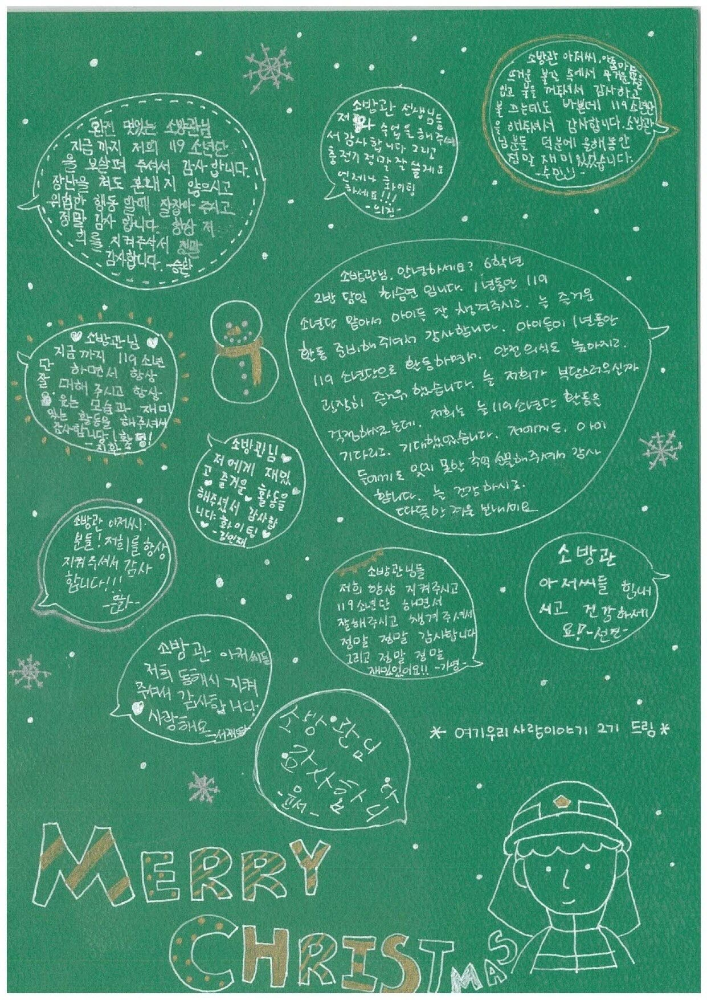 완전 멋있는 소방관님
지금 까지 저희 119 소년단
을 보살펴 주셔서 감사합니다.
장난을 쳐도 혼내지 않으시고
위험한 행동 할때 잘잡아 주시고
정말 감사 합니다. 항상 저
희를 지켜주셔서 정말
감사합니다.
소방관 선생님들
수업을 해주
서 감사합니다 그리고
충전기 정말 잘 쓸게요
언제나 화이팅
하세요!!!
-의진-
소방관 아저씨,
뜨거운 불길 속에서
입고 불을 꺼주셔서 감사하고
불 끄는데도 바쁜데 119소년단
을 해주셔서 감사합니다. 소방관
님분들 덕분에 올해동안
정말 재미있었습니다.
소방관님. 안녕하세요? 6학년
2반 담임 최승연 입니다. 1년동안 119
소년단 맡아서 아이들 잘 챙겨주시고. 늘 즐거운
활동 준비해주셔서 감사합니다. 아이들이 1년동안
119 소년단으로 활동하면서. 안전 의식도 높아지고.
굉장히 즐거워 했습니다. 늘 저희가 부담스러우신가
걱정해왔는데. 저희는 늘 119소년단 활동을
기다리고. 기대했었습니다. 저에게도. 아이
들에게도 잊지 못할 추억 선물해주셔서 감사
합니다. 늘 건강하시고.
따뜻한 겨울 보내세요
소방관님
지금까지 119 소년
단 하면서 항상
잘 대해 주시고 항상
웃는 모습과 재미
있는 활동을 해주셔서
감사합니당! 활
소방관님
저에게 재밌
고 즐거운 활동을
해주셔서 감사합
니다. 화이팅
소방관 아저씨
분들! 저희를 항상
지켜주셔서 감사
합니다!!!
소방관님들
저희 항상 지켜주시고
119소년단 하면서
잘해주시고 챙겨주셔서
정말 정말 감사합니다
그리고 정말 정말
재밌었어요!!
소방관
아저씨들 힘내
시고 건강하세
요!
소방관 아저씨들
저희 동해시 지켜
주셔서 감사합니다.
사랑해요
소방관님
감사합니다
-윤서-
* 여기우리 사랑이야기 2기 드림 *
MERRY
CHRISTMAS